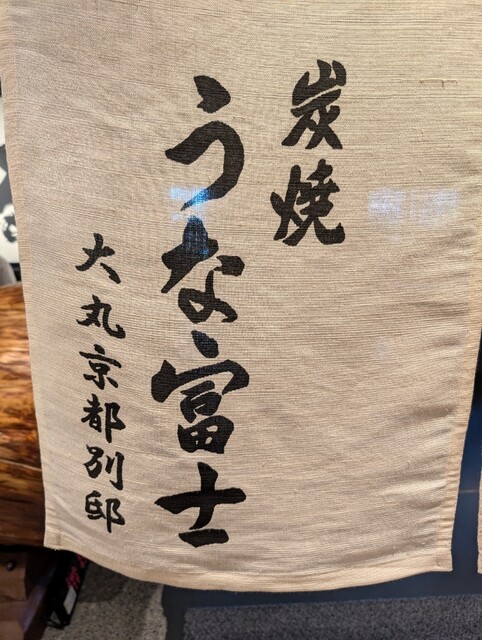 炭焼
うな富士
大丸京都別邸